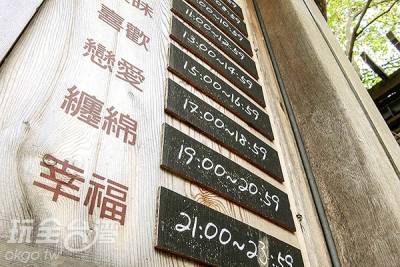 喜歡
戀愛
纏綿
幸福
11:00~12:59
13:00~14:59
15:00~16:59
17:00~18:59
19:00~20:59
21:00~23:59
玩全台灣
okgo.tw